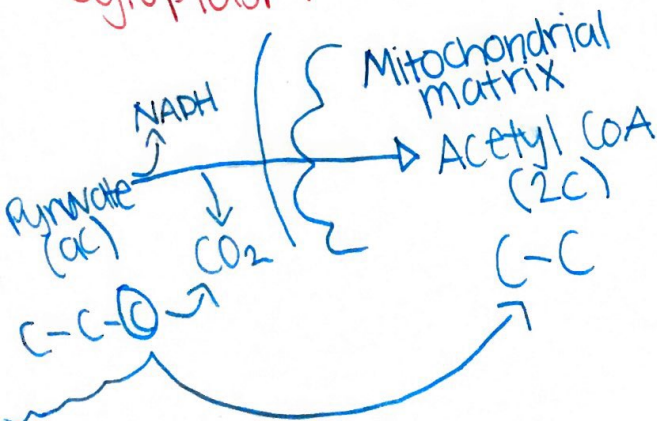 Mitochondrial
matrix
NADH
Pyruvate
Acetyl CoA
(2C)
CO2
C-C
C-C-C